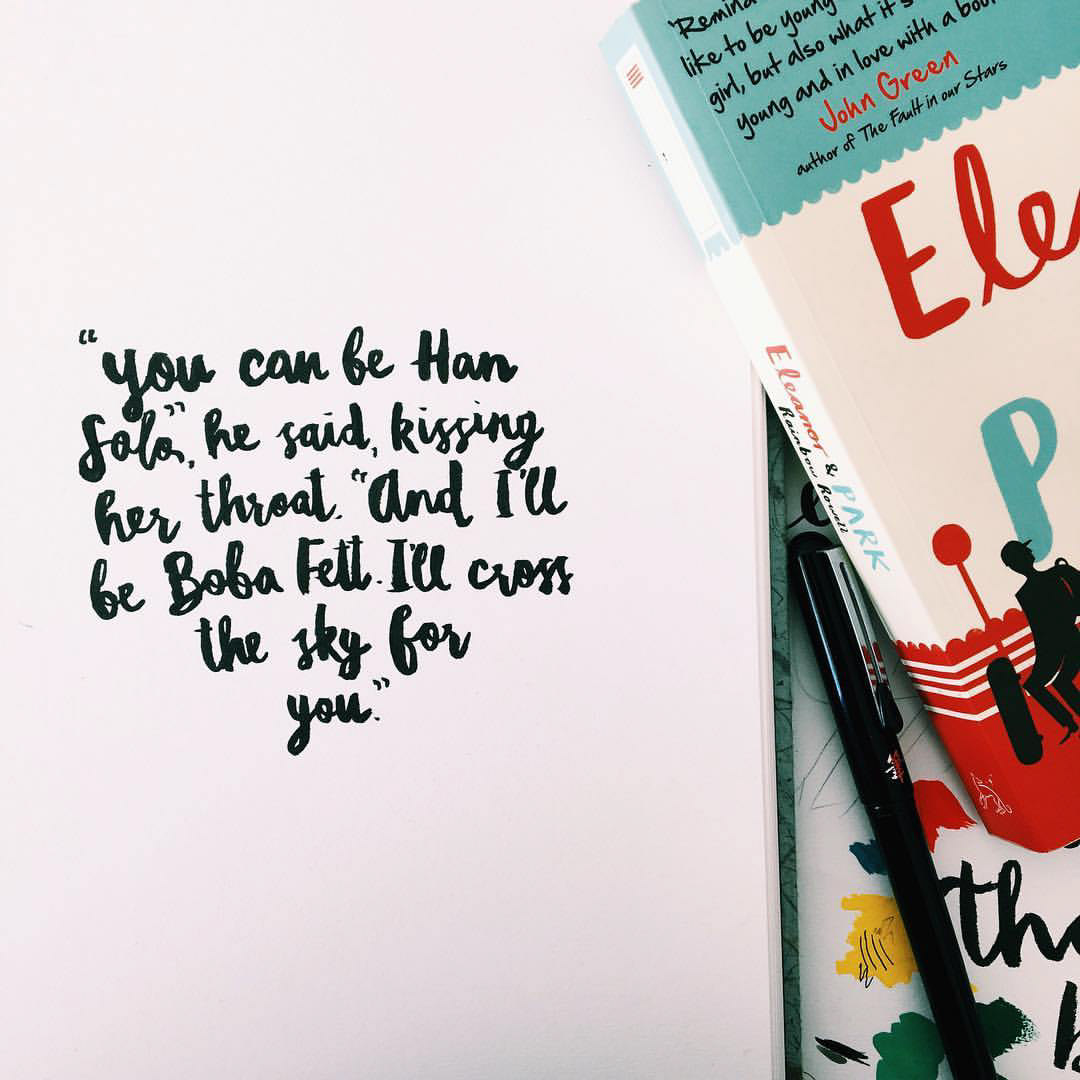 "you can be Han
Solo", he said, kissing
her throat. "And I'll
be Boba Fett. I'll cross
the sky for
you."
like to be young
girl, but also what it's
young and in love with a
John Green
author of The Fault in our Stars
Eleanor & PARK
Rainbow Rowell